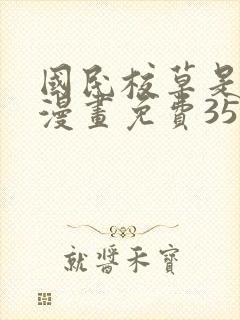 國民校草是
漫畫免費35
就醬禾寶